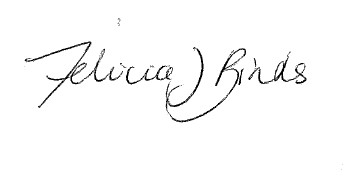 Felicia J Rinds